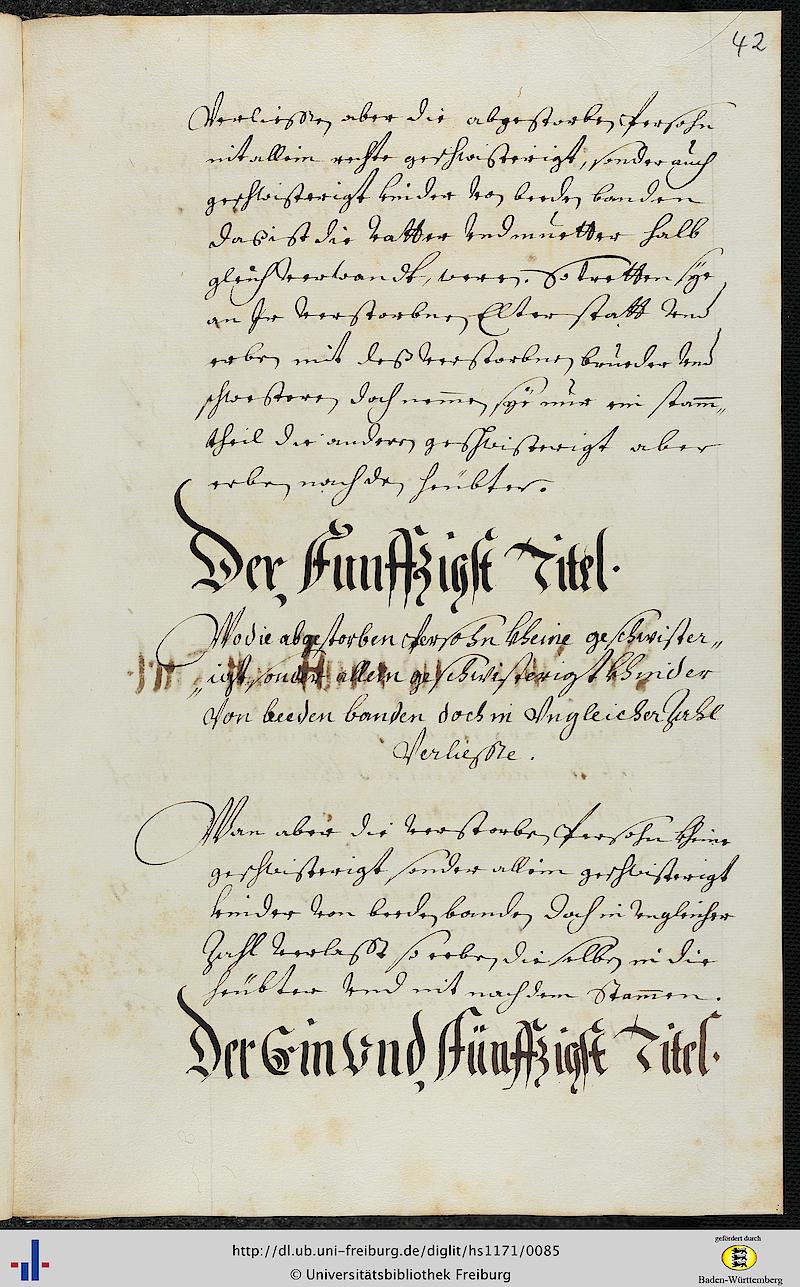 42
Verliesse, aber die abgestorben Persohn
nit allein rechte geschwisterigt, sonder auch
geschwisterigt kinder von beeden banden
das ist die vatter vnd muetter halb
gleich verwandt, weren. So tretten sye
an Ir verstorbnen Elter statt vnd
erben mit deß verstorbnen brueder vnd
schwesteren doch nemmen sye nur ein stamm„
theil die anderen geschwisterigt aber
erben nach den heübter.
Der Funffzigst Titel.
Wo die abgestorben Persohn kheine geschwister„
„igt, sonder allein geschwisterigt khinder
Von beeden banden doch in Vngleicher Zahl
Verliesse.
Wan aber die verstorben Persohn kheine
geschwisterigt sonder allein geschwisterigt
kinder von beeden banden doch in vngleicher
Zahl verlasst so erben die selben in die
heübter vnd nit nach dem Stammen.
Der Ein Vnd Fünffzigst Titel.
http://dl.ub.uni-freiburg.de/diglit/hs1171/0085
© Universitätsbibliothek Freiburg
gefördert durch
Baden-Württemberg